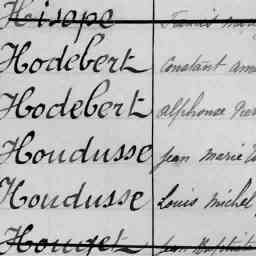 Hisope
Hodebert Constant
Hodebert Alphonse
Houdusse Jean Marie
Houdusse Louis Michel
Houget Jean Baptiste